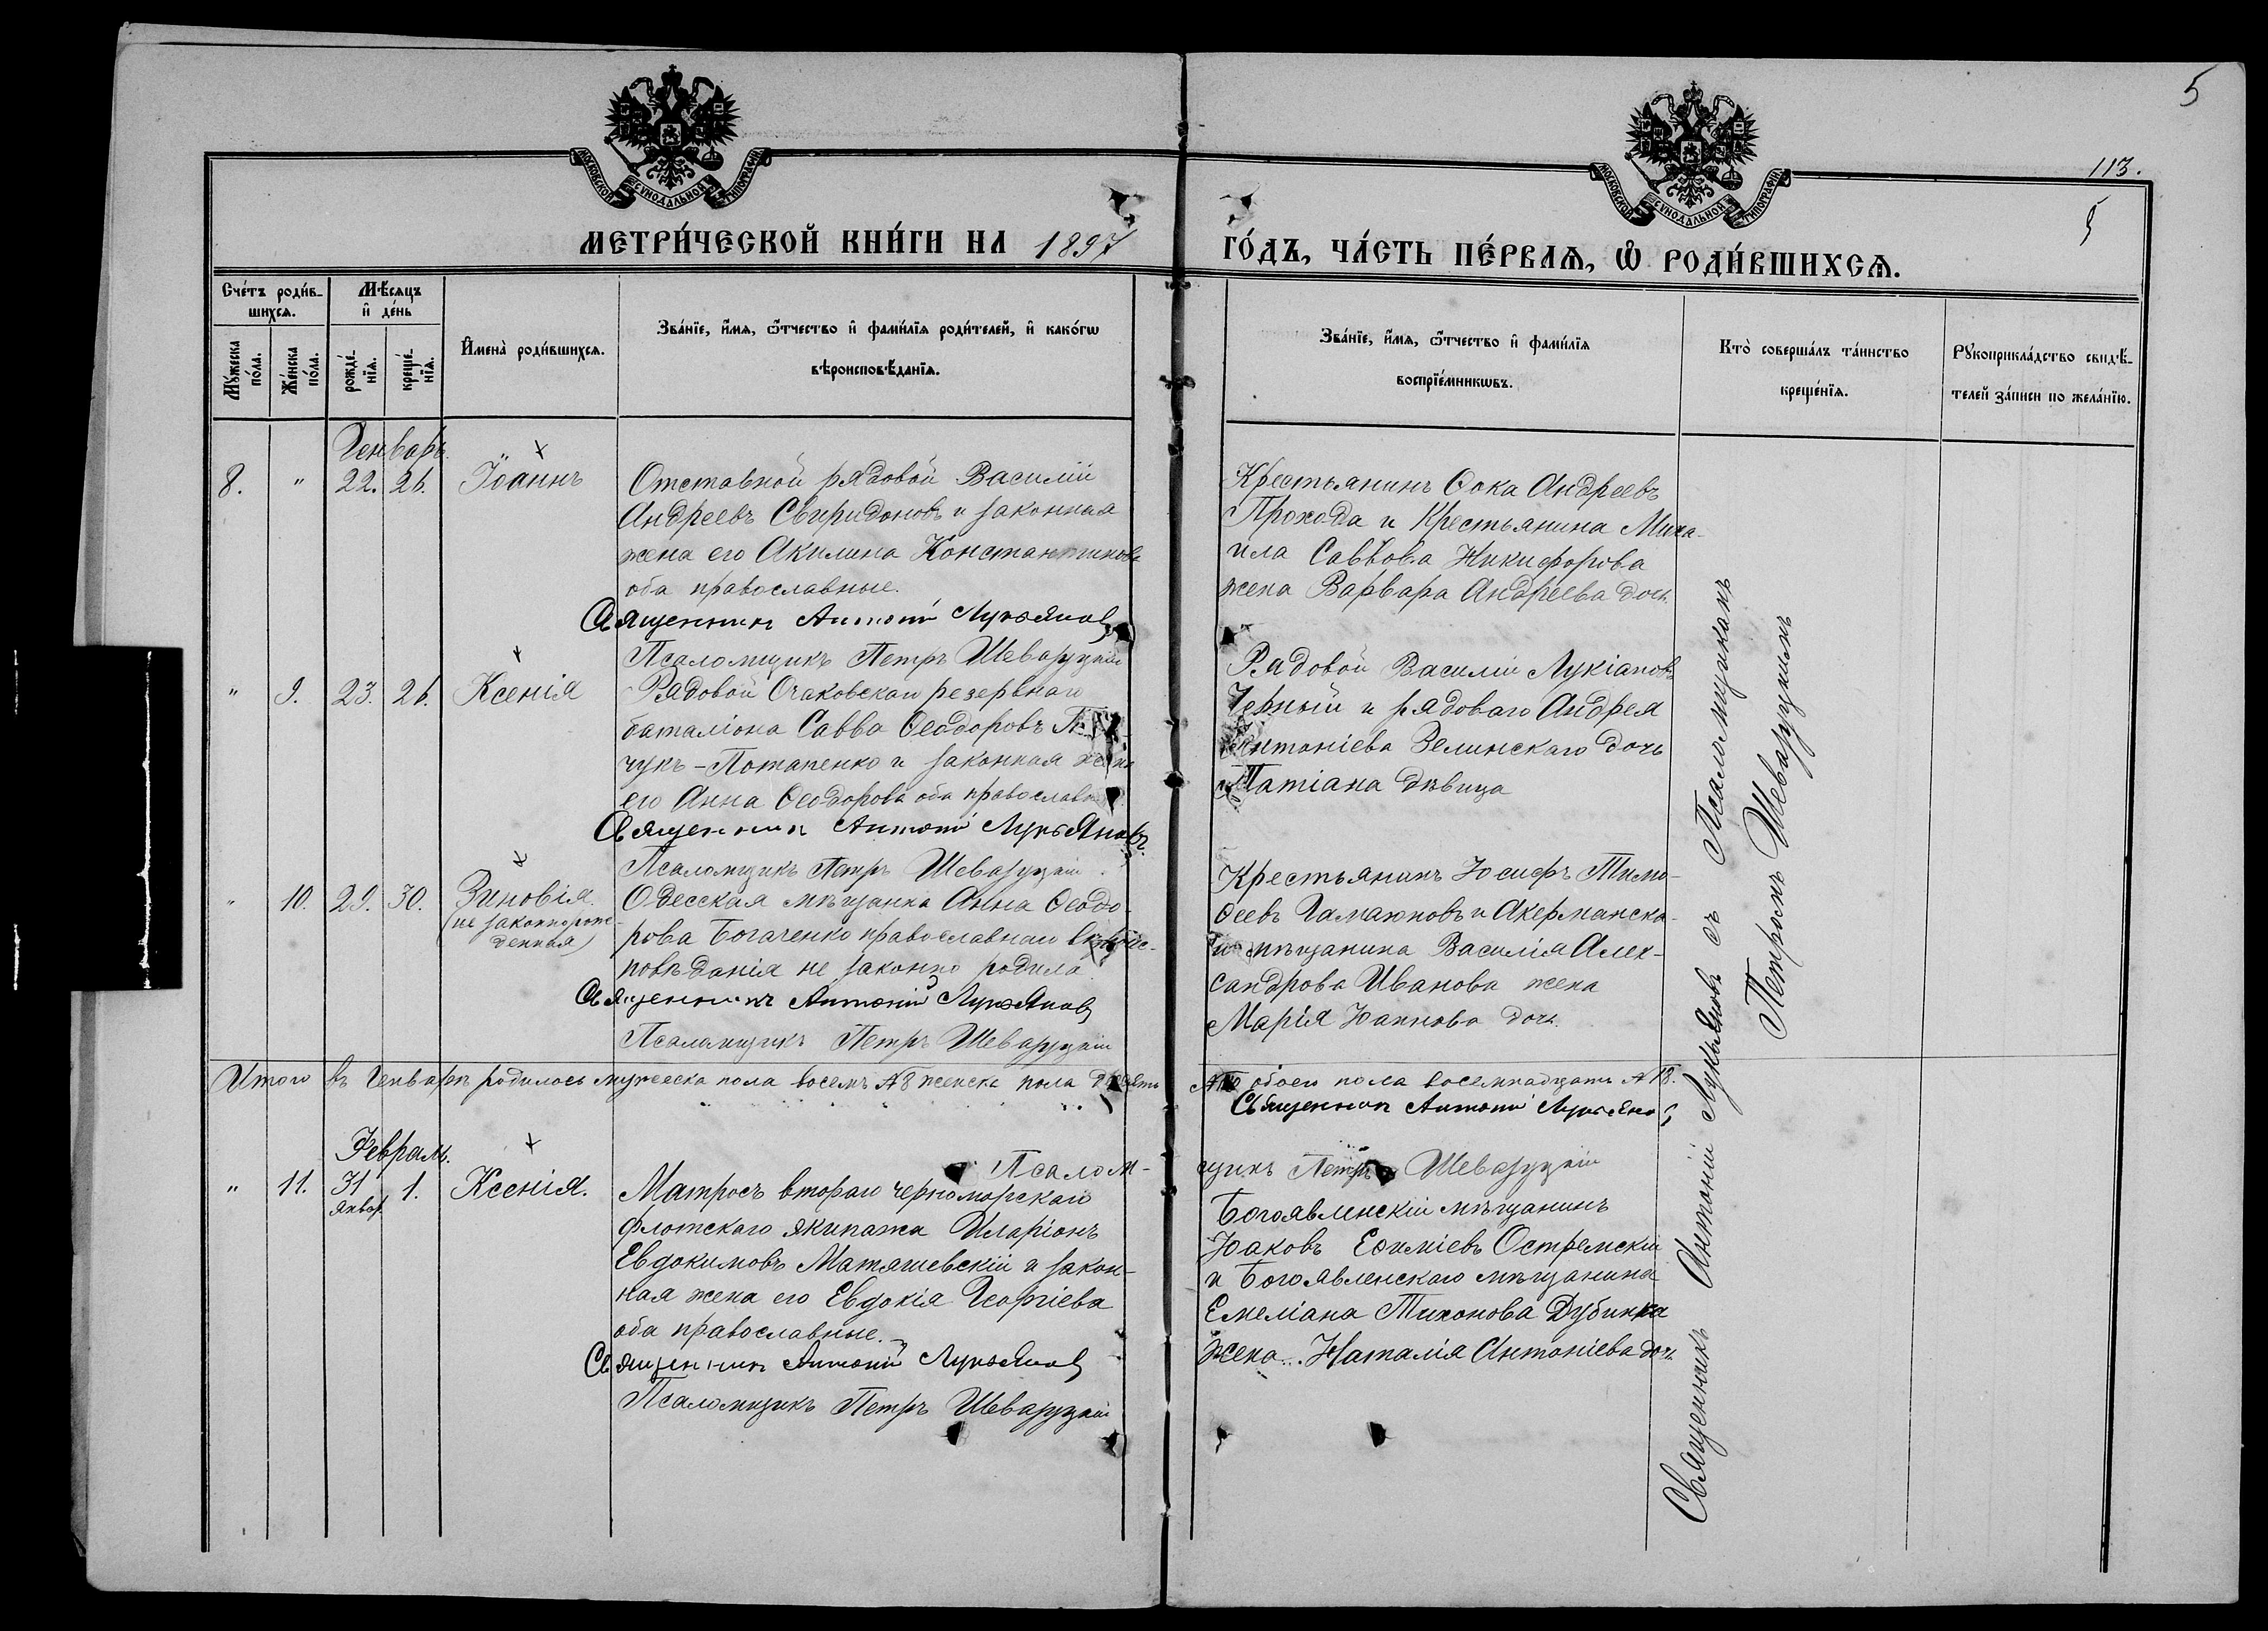 5
113.
5
МОСКОВСКОЙ СУНОДАЛЬНОЙ ТИПОГРАФІИ
МОСКОВСКОЙ СУНОДАЛЬНОЙ ТИПОГРАФІИ
МЕТРИ́ЧЕСКОЙ КНИ́ГИ НА 1897
ГО́ДЪ, ЧА́СТЬ ПЕ́РВАѦ, Ѡ҆ РОДИ́ВШИХСѦ.
Сче́тъ роди́в-
шихсѧ.
Мꙋ́жеска
по́ла.
Же́нска
по́ла.
Мѣ́сѧцъ
и҆ де́нь
рожде́-
нїѧ.
креще́-
нїѧ.
И҆мена̀ роди́вшихсѧ.
Зва́нїе, и҆́мѧ, ѻ҆́тчество и҆ фами́лїѧ роди́телей, и҆ како́гѡ
вѣроисповѣ́данїѧ.
Зва́нїе, и҆́мѧ, ѻ҆́тчество и҆ фами́лїѧ
воспрїе́мникѡвъ.
Кто̀ соверша́лъ та́инство
креще́нїѧ.
Рꙋкоприкла́дство свидѣ́-
телей за́писи по жела́нїю.
Генварь.
8. " 22. 26. Іоаннъ
Отставной рядовой Василій
Андреевъ Свиридоновъ и законная
жена его Акилина Константинова
оба православные.
Священникъ Антоній Лукьяновъ
Псаломщикъ Петръ Шеваруцкій
Крестьянинъ Ѳока Андреевъ
Прохода и Крестьянина Миха-
ила Саввова Никифорова
жена Варвара Андреева дочь
" 9. 23. 26. Ксенія
Рядовой Очаковскаго резервнаго
баталіона Савва Ѳеодоровъ
чукъ-Потапенко и законная жена
его Анна Ѳеодорова оба православн
Священникъ Антоній Лукьяновъ.
Псаломщикъ Петръ Шеваруцкій
Рядовой Василій Лукіановъ
Черный и рядоваго Андрея
Антоніева Зелинскаго дочь
Татіана дѣвица
" 10. 29. 30. Зиновія.
(не законнорож-
денная)
Одесская мѣщанка Анна Ѳеодо-
рова Богаченко православнаго вѣроис-
повѣданія не законно родила
Священникъ Антоній Лукьяновъ
Псаломщикъ Петръ Шеваруцкій
Крестьянинъ Іосифъ Тимо-
ѳеевъ Гамаюновъ и Акерманска-
го мѣщанина Василія Алек-
сандрова Иванова жена
Марія Іоаннова дочь.
Итого въ Генварѣ родилось мужеска пола восемь № 8 женска пола десять
№ 10 обоего пола восемнадцать № 18.
Священникъ Антоній Лукьяновъ
Псалом-
щикъ Петръ Шеваруцкій
Февраль.
" 11. 31 1. Ксенія.
Январ.
Матросъ втораго черноморскаго
флотскаго экипажа Иларіонъ
Евдокимовъ Матяшевскій и закон-
ная жена его Евдокія Георгіева
оба православные.
Священникъ Антоній Лукьяновъ
Псаломщикъ Петръ Шеваруцкій
Богоявленскій мѣщанинъ
Іаковъ Ефиміевъ Остремскій
и Богоявленскаго мѣщанина
Емеліана Тихонова Дубинка
жена Наталія Антоніева дочь
Священникъ Антоній Лукьяновъ съ Псаломщикомъ
Петромъ Шеваруцкимъ